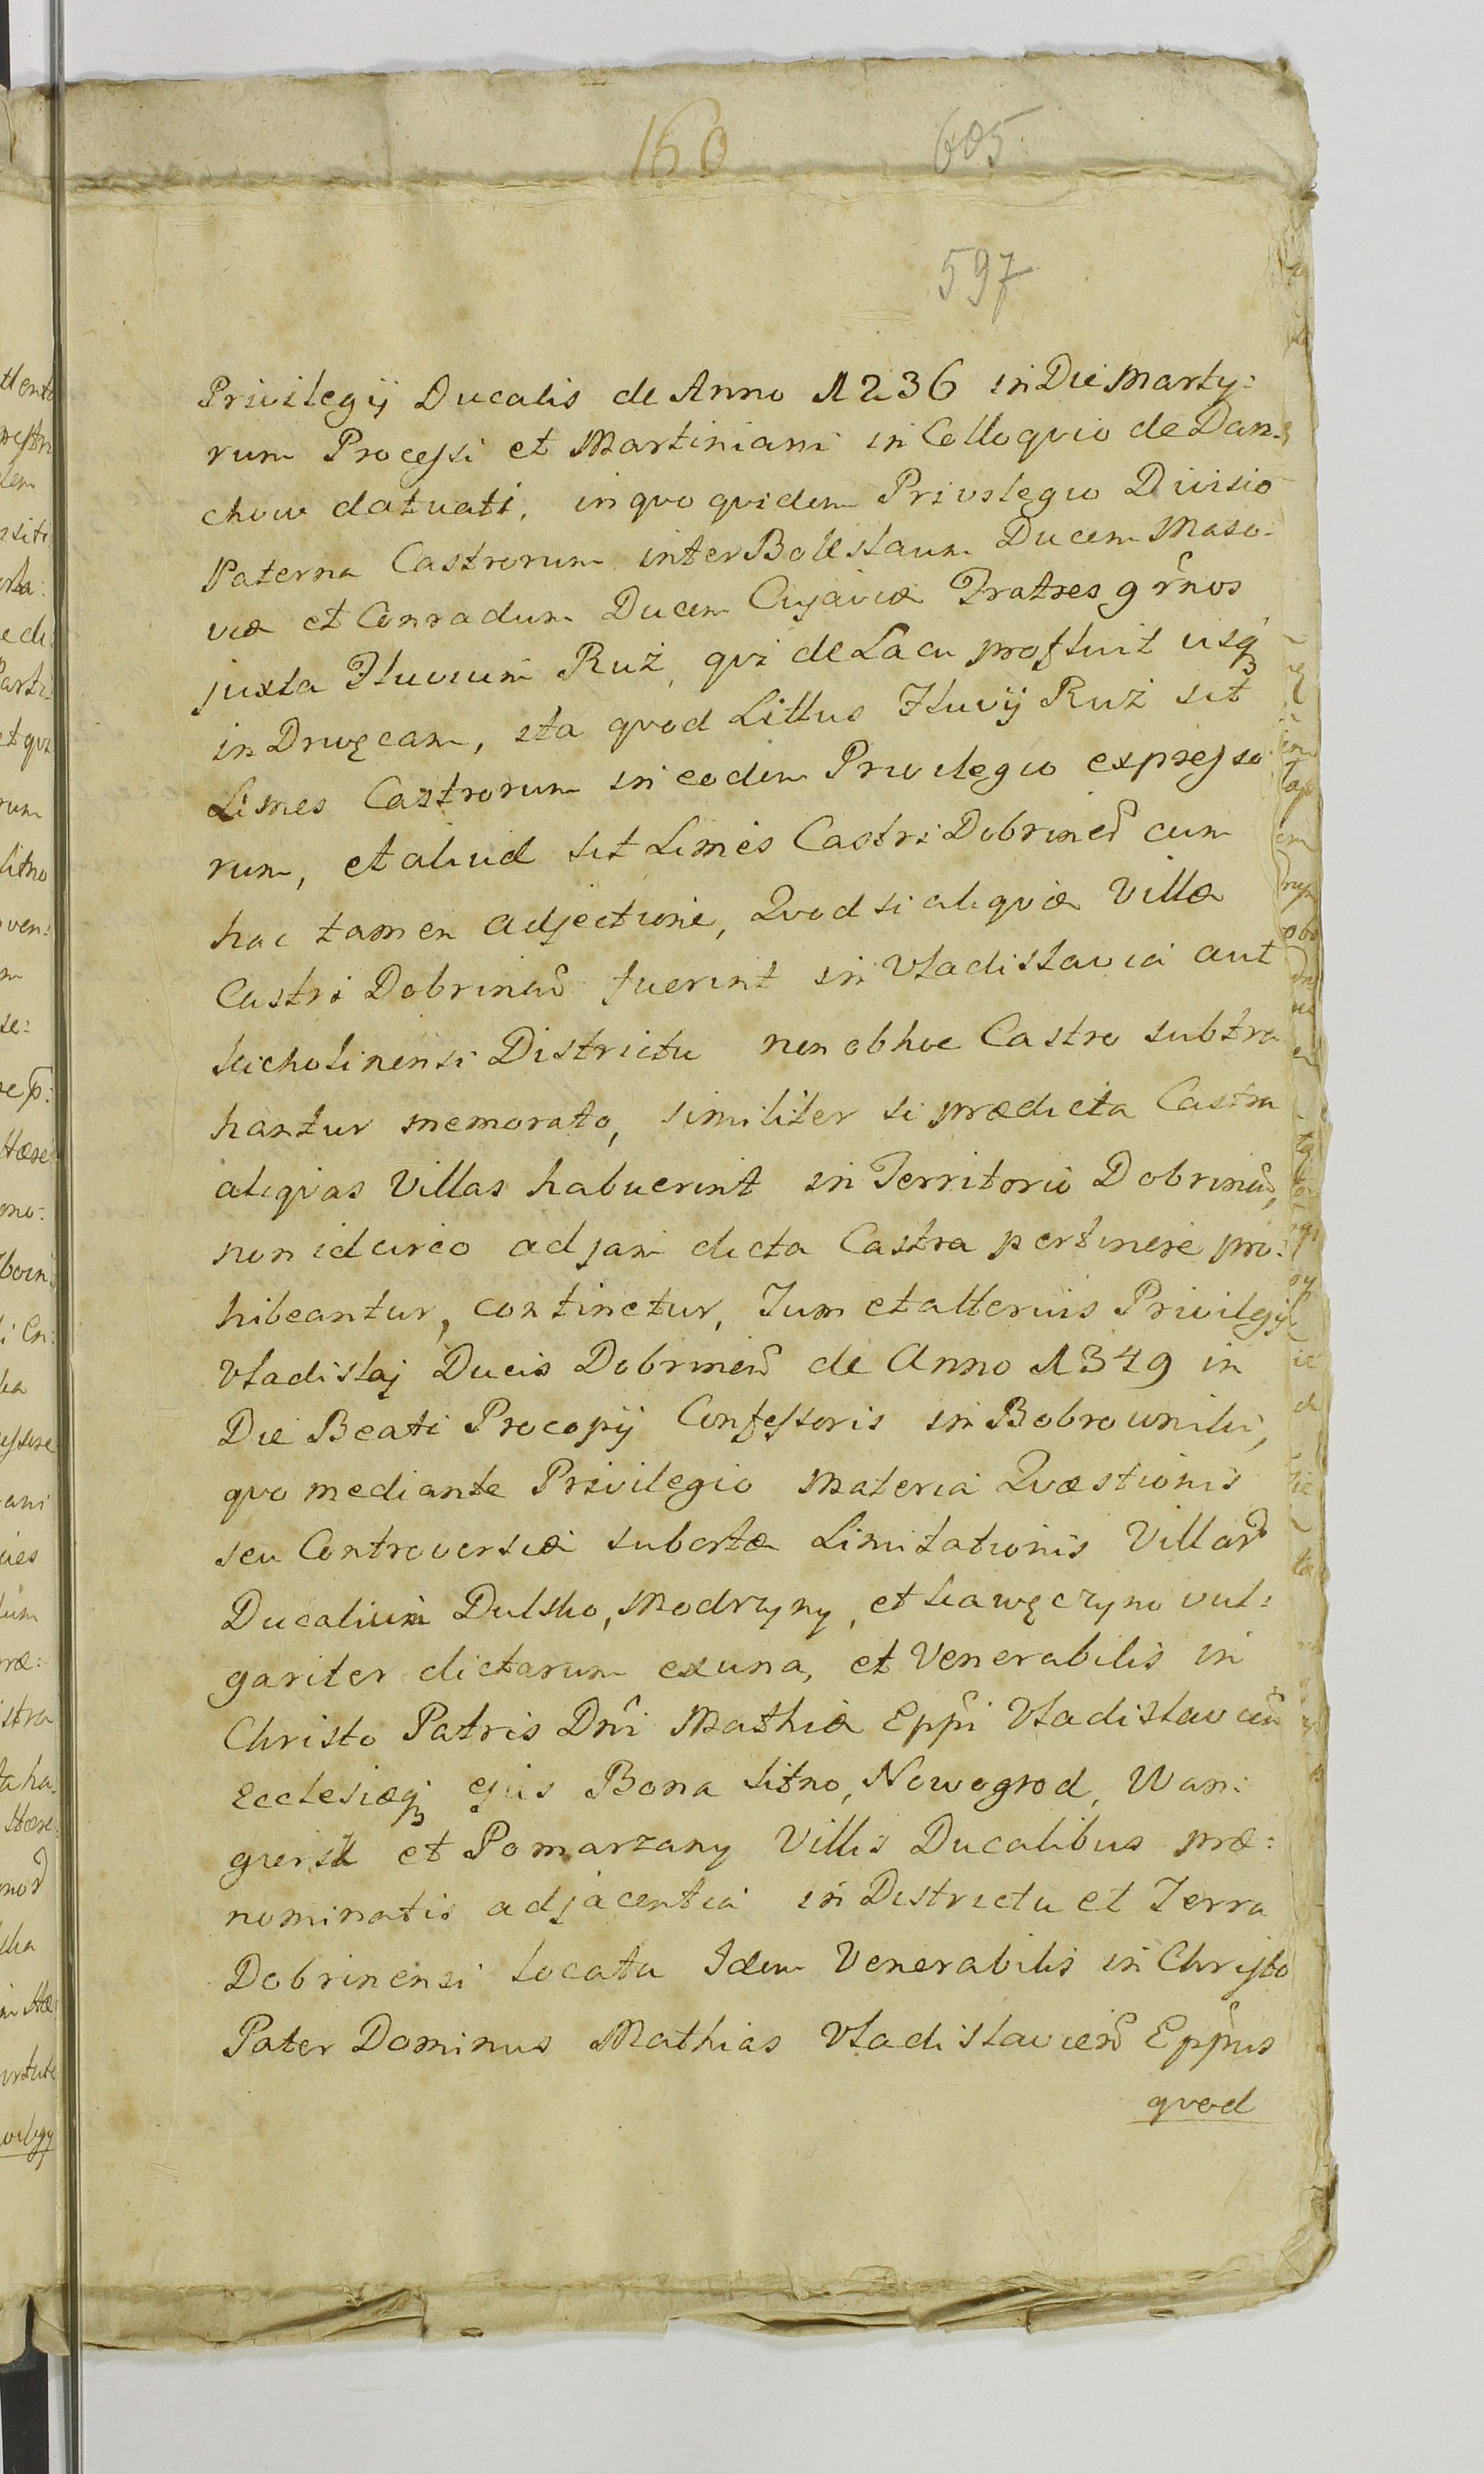 160 605.
597
Privilegij Ducalis de Anno 1236 in Die Marty:
rum Processi et Martiniani in Colloquio de Dan:
chow datuati, in quo quidem Privilegio Divisio
Paterna Castrorum inter Bolislaum Ducem Maso:
viæ et Conradum Ducem Cujaviæ Fratres grños
juxta Fluvium Ruż, qui de Lacu profluit usq
in Drwęcam, ita quod Littus Fluvij Ruż sit
Limes Castrorum in eodem Privilegio expresso
rum, et aliud sit Limes Castri Dobrineñ cum
hac tamen adjectione, Quod si aliquæ Villæ
Castri Dobrineñ fuerint in Vladislavia aut
Districtu non ob hoc Castro subtra
hantur memorato, similiter si prædicta Castra
aliquas Villas habuerint in Territorio Dobrineñ,
non idcirco ad jam dicta Castra pertinere pro:
hibeantur, continetur, Tum et alterius Privilegij
Vladislaj Ducis Dobrineñ de Anno 1349 in
Die Beati Procopij Confessoris in Bobrowniki,
quo mediante Privilegio Materia Quæstionis
seu Controversiæ subortæ Limitationis Villar
Ducalium Dulsko, Modrzyny, et Kawęczyno vul:
gariter dictarum ex una, et Venerabilis in
Christo Patris Dñi Mathiæ Eppi Vladislavieñ
Ecclesiæq ejus Bona Sitno, Nowogrod, Wan:
giersk et Pomarzany Villis Ducalibus præ:
nominatis adjacentia in Districtu et Terra
Dobrinensi locata Idem Venerabilis in Christo
Pater Dominus Mathias Vladislavieñ Eppus
quod